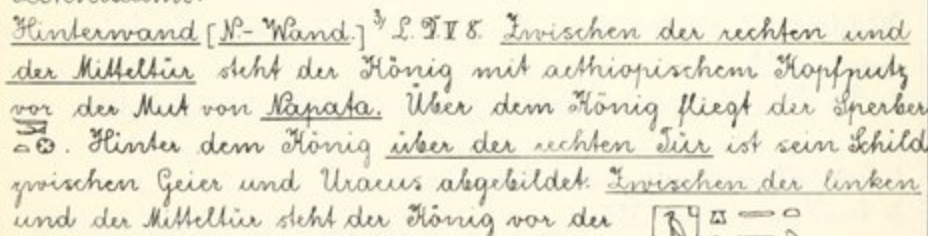 Hinterwand [N.- Wand.] 3) L. D. V 8. Zwischen der rechten und
der Mitteltür steht der König mit aethiopischem Kopfputz
vor der Mut von Napata. Über dem König fliegt der Sperber
. Hinter dem König über der rechten Tür ist sein Schild
zwischen Geier und Uraeus abgebildet. Zwischen der linken
und der Mitteltür steht der König vor der